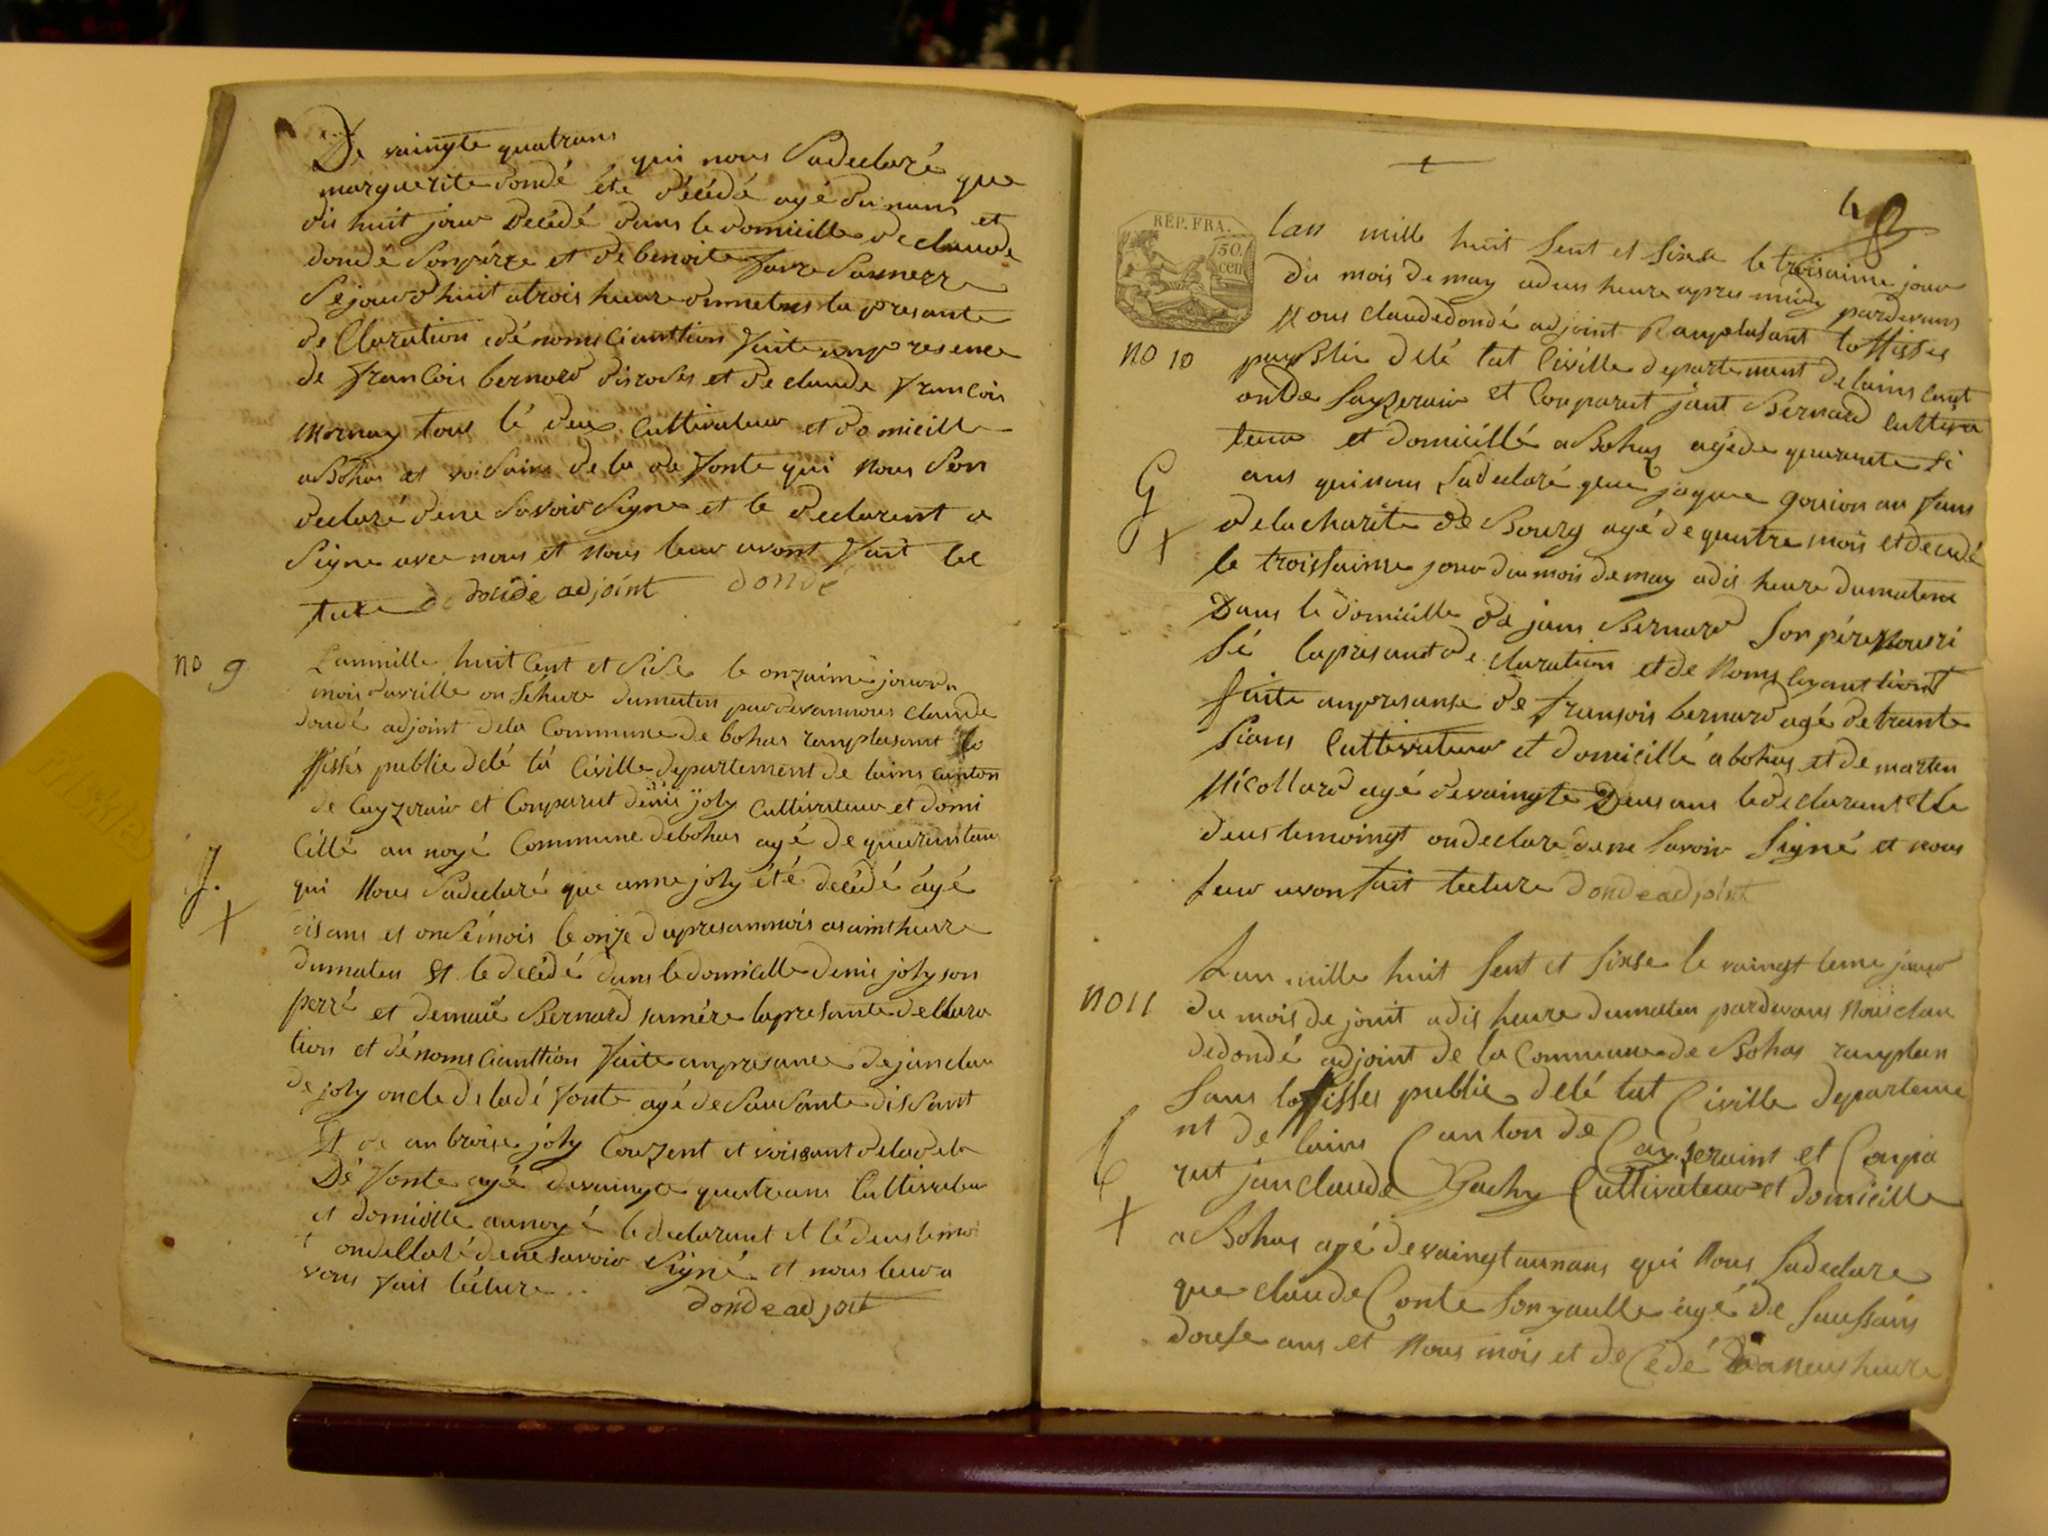 De vaingte quatrans
qui nous Sadeclaré que
marguerite dondé été décédé agé du nans et
dis huit jour Décédé dans le domicille de claude
dondé Son pérre et de benoite favre Sa merre
Sejourd huit a trois heure du maten la presante
de Claration dé noms Cianttion faite anpresence
de francois bernard disroses et de claude francois
mornay tous lé deux Cultivateur et domicille
a Bohas et voisains de la de fonte qui nous Son
declaré dene Savoir Signe et le declarent a
Signe avec nous et nous leur avont fait lec
ture dondé adjoint dondé
no 9
Lanmille huit Cent et Sise le onzaime jour du
mois davrille on Séheure dumaten pardevannous claude
dondé adjoint dela Commune de bohas ranplasant lo
ffisiés publie delé tà Civille departement de lains canton
de Cayzeraiv et Conparut denis joly Cultivateur et domi
Cillé au noyé Commune debohas agé de quarantans
qui Nous Sadeclaré que anne joly été décédé ágé
disans et onsémois le onze dupresanmois asaintheure
dumaten Et le décédé dans ledomicille denis joly son
perré et demarie Bernard samére lapresante declara
tion et dénoms Cianttion faite anpresance dejanclau
de joly oncle de ladé fonte agé de Sausante dissant
Et de anbroise joly Couzent et voissant delade
Dé fonte agé devaingte quatreans Cultivateu
et domicille aunoyé le declarant et lé deus temoi
ondellaré dene savoir Signé et nous leur a
vons fait lécture
dondeadjoit
J.
X
RÉP. FRA.
50.
cen
Lan mille huit Sent et Sixse le troisaime jour
du mois de may adeus heure apres midy pardevans
Nous claudedondé adjoint Ranplasant loffisies
publie delé tat Civille departement delains cant
onde Sayzeraiv et Conparut jant Bernard Cultiva
teur et domicillé a Bohas agéde quarante Si
ans quinous Sadeclaré que jaque gouion an fans
delacharité de Bourg agé de quatre mois et decédé
le troissaime jour du mois demay adis heure dumatene
Dans le domicille de jans Bernard Son pére Nouri
Sié lapresantede claration et de Noms Ciyanttiont
faite anpresanse de fransois bernard agé de trante
Sicans Cultivateur et domicillé a bohas et de marten
Nicollard agé devaingte Deus ans ledeclarant et le
deus temoingt ondeclare dene Savoir Signé et nous
leur avon fait lecture dondeadjoint
no 10
G
X
Lan mille huit Sent et Sixse le vaingt teme jour
du mois de jouit adis heure dumaten pardevans Nous clau
dedondé adjoint de la Commune de Bohas ranplan
Sans loffisses publie delé tat Civille departeme
nt de lains Canton de Cayzeraint et Conpa
rut janclaude Pachy Cultivateur et domicille
a Bohas agé devaingtaunans qui Nous Sadeclare
que claude Conte Son agé de Saussans
douse ans et Nous mois et de Cédé aneus heure
no 11
C
X